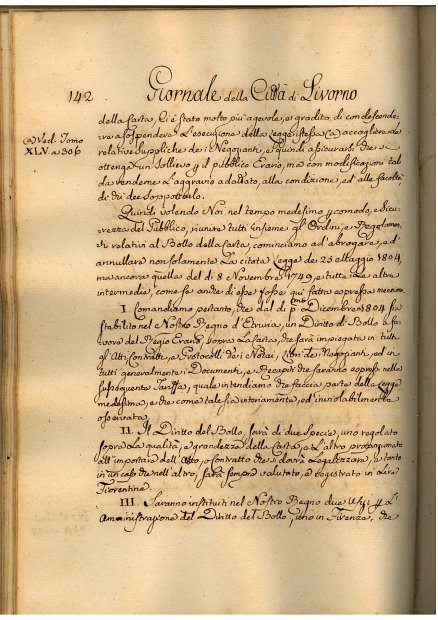 142. Giornale della Città di Livorno
(a) Ved. Tomo
XLV. a 306
della Carta, Ci è stato molto più agevole, e gradita di condescende-
re a sospendere l'esecuzione della Legge istessa (a) accogliere le
relative Suppliche dei Negozianti, e quindi assicurarsi che
ottenga un sollievo il pubblico Erario, ma con modificazioni tali
da renderne l'aggravio adattato, alla condizione, ed alle facoltà
di chi dee sopportarlo.
Quindi volendo Noi nel tempo medesimo comodo, e Sicu-
rezza del Pubblico, riunire tutti insieme gl'Ordini, e Regolamen-
ti relativi al Bollo della Carta, cominciamo ad abrogare, ed
annullare non solamente La citata Legge de' 25 Maggio 1804,
ma ancora quella del dì 8 Novembre 1749, e tutte le altre
intermedie, come se anche di esse fosse qui fatta espressa menzione
I. Comandiamo pertanto, che dal dì pmo Dicembre 1804 sia
stabilito nel Nostro Regno d'Etruria, un Diritto di Bollo a fa-
vore del Regio Erario, sopra La Carta, che sarà impiegata in tutti
gl'Atti, Contratti, e Protocolli dei Notai, Libri de' Negozianti, ed in
tutti generalmente i Documenti, e Recapiti che saranno espressi nella
susseguente Tariffa, quale intendiamo che faccia parte della Legge
medesima, e che come tale sia interamente, ed inviolabilmente
osservata.
II. Il Diritto del Bollo, sarà di due specie, uno regolato
sopra La qualità, e grandezza della Carta, e L'altro proporzionato
all'importare dell'Atto, o Contratto che si dovrà Legalizzare, e tanto
in un caso che nell'altro, sarà sempre valutato, e registrato in Lire
Fiorentine.
III. Saranno instituiti nel Nostro Regno due Ufizi L'
Amministrazione del Diritto del Bollo, uno in Firenze, che